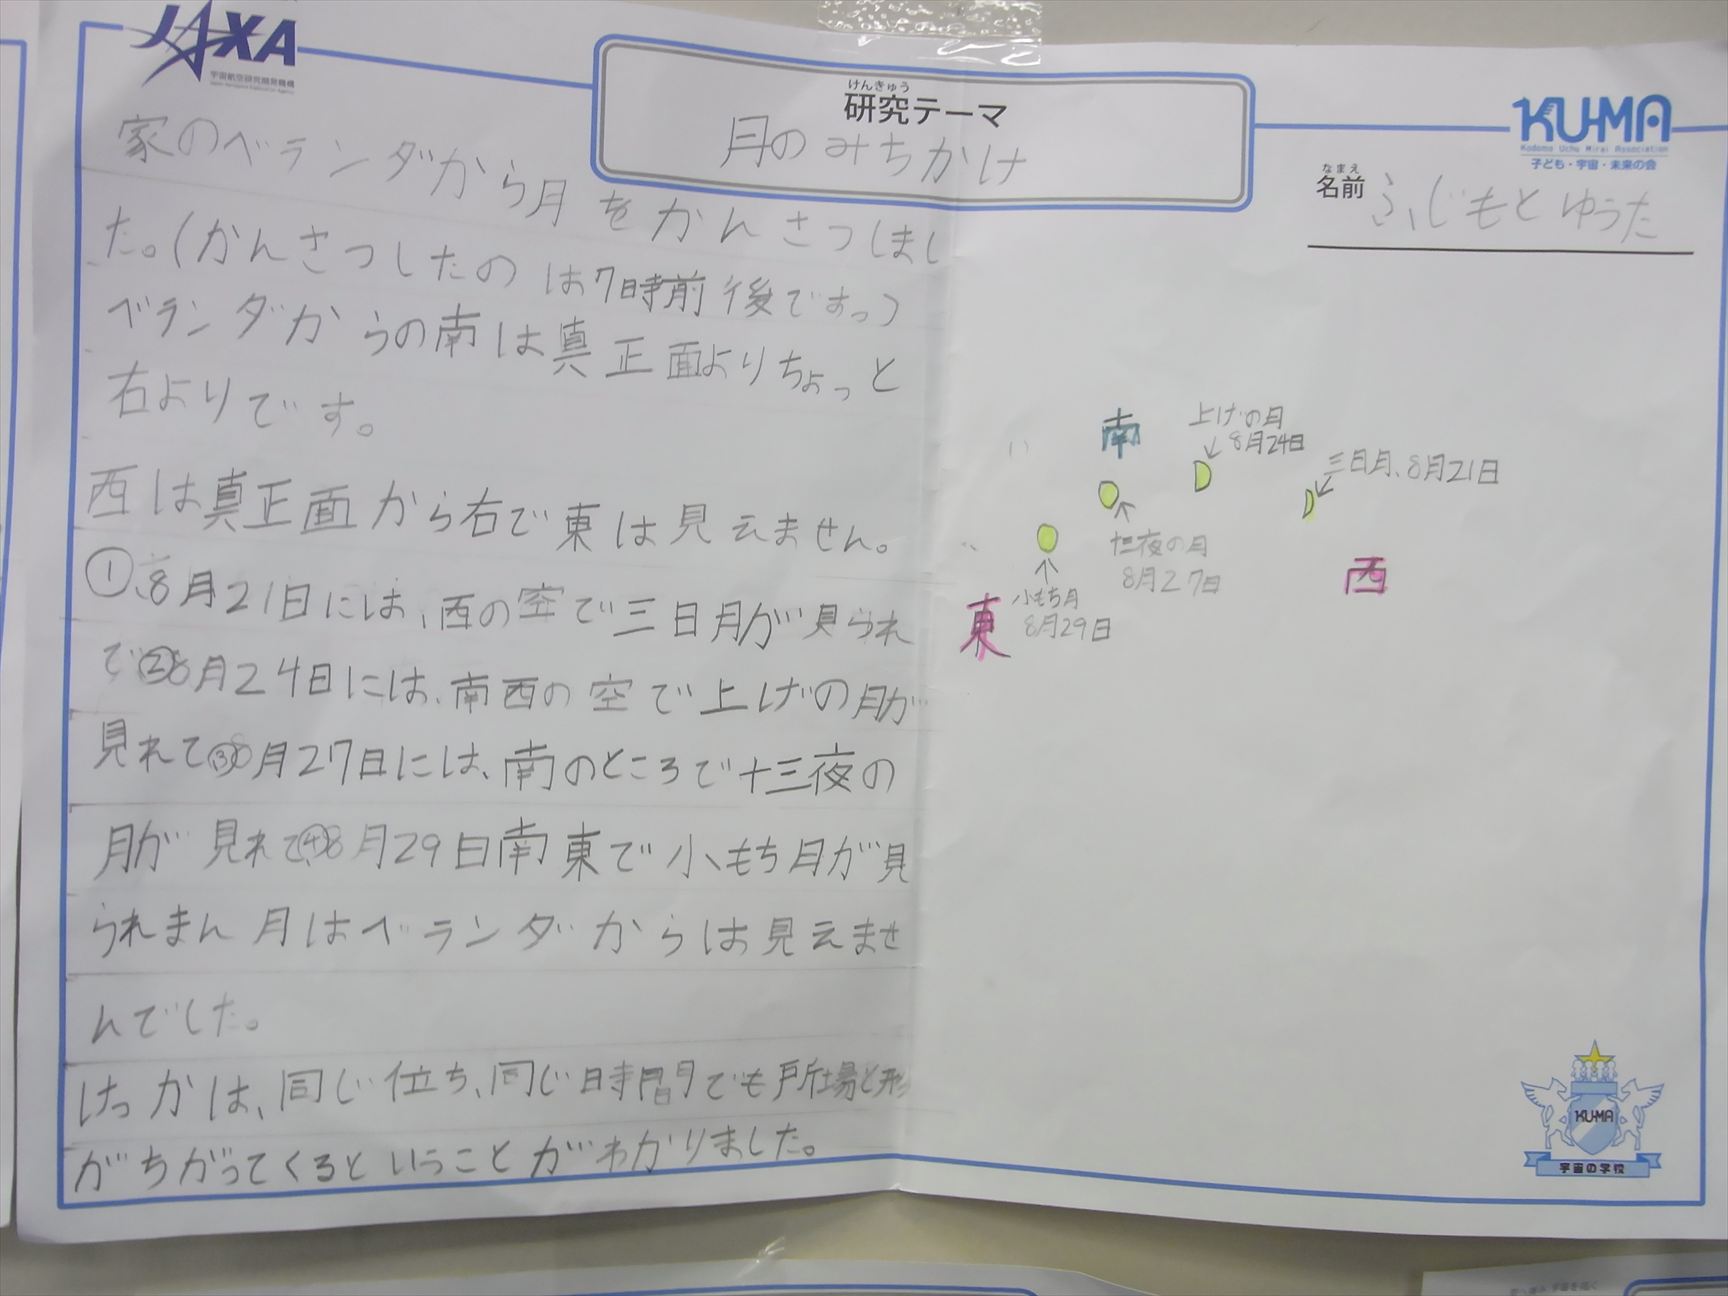 JAXA
宇宙航空研究開発機構
Japan Aerospace Exploration Agency
けんきゅう
研究テーマ
月のみちかけ
KU-MA
Kodomo Uchu Mirai Association
子ども・宇宙・未来の会
なまえ
名前 ふじもとゆうた
家のベランダから月をかんさつしまし
た。(かんさつしたのは7時前後ですっ)
ベランダからの南は真正面よりちょっと
右よりです。
西は真正面から右で東は見えません。
①、8月21日には、西の空で三日月が見られ
で②8月24日には、南西の空で上げの月が
見れて③8月27日には、南のところで十三夜の
月が見れて④8月29日南東で小もち月が見
られまん月はベランダからは見えませ
んでした。
けっかは、同じ位ち、同じ時間でも所場と形
がちがってくるということがわかりました。
南
上げの月
8月24日
三日月、8月21日
十三夜の月
8月27日
西
小もち月
8月29日
東
KU-MA
宇宙の学校